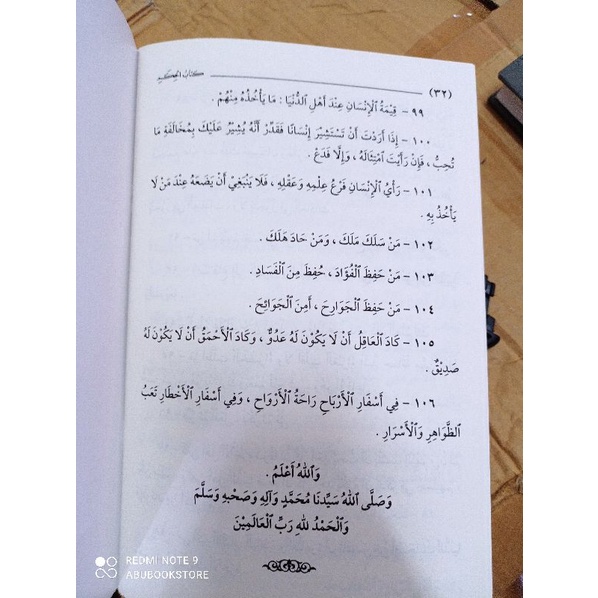 (٣٢) كتاب الحكم
٩٩ - قِيْمَةُ ٱلْإِنْسَانِ عِنْدَ أَهْلِ ٱلدُّنْيَا : مَا يَأْخُذُهُ مِنْهُمْ .
١٠٠ - إِذَا أَرَدْتَ أَنْ تَسْتَشِيْرَ إِنْسَانًا فَقَدِّرْ أَنَّهُ يُشِيْرُ عَلَيْكَ بِمُخَالَفَةِ مَا
تُحِبُّ ، فَإِنْ رَأَيْتَ ٱمْتِثَالَهُ ، وَإِلَّا فَدَعْ .
١٠١ - رَأْيُ ٱلْإِنْسَانِ فَرْعُ عِلْمِهِ وَعَقْلِهِ ، فَلَا يَنْبَغِيْ أَنْ يَضَعَهُ عِنْدَ مَنْ لَا
يَأْخُذُ بِهِ .
١٠٢ - مَنْ سَلَكَ مَلَكَ ، وَمَنْ حَادَ هَلَكَ .
١٠٣ - مَنْ حَفِظَ ٱلْفُؤَادَ ، حُفِظَ مِنَ ٱلْفَسَادِ .
١٠٤ - مَنْ حَفِظَ ٱلْجَوَارِحَ ، أَمِنَ ٱلْجَوَائِحَ .
١٠٥ - كَادَ ٱلْعَاقِلُ أَنْ لَا يَكُوْنَ لَهُ عَدُوٌّ ، وَكَادَ ٱلْأَحْمَقُ أَنْ لَا يَكُوْنَ لَهُ
صَدِيْقٌ .
١٠٦ - فِي أَسْفَارِ ٱلْأَرْبَاحِ رَاحَةُ ٱلْأَرْوَاحِ ، وَفِي أَسْفَارِ ٱلْأَخْطَارِ تَعَبُ
ٱلظَّوَاهِرِ وَٱلْأَسْرَارِ .
وَٱللهُ أَعْلَمُ .
وَصَلَّى ٱللهُ سَيِّدِنَا مُحَمَّدٍ وَآلِهِ وَصَحْبِهِ وَسَلَّمَ
وَٱلْحَمْدُ لِلهِ رَبِّ ٱلْعَالَمِيْنَ
REDMI NOTE 9
ABUBOOKSTORE